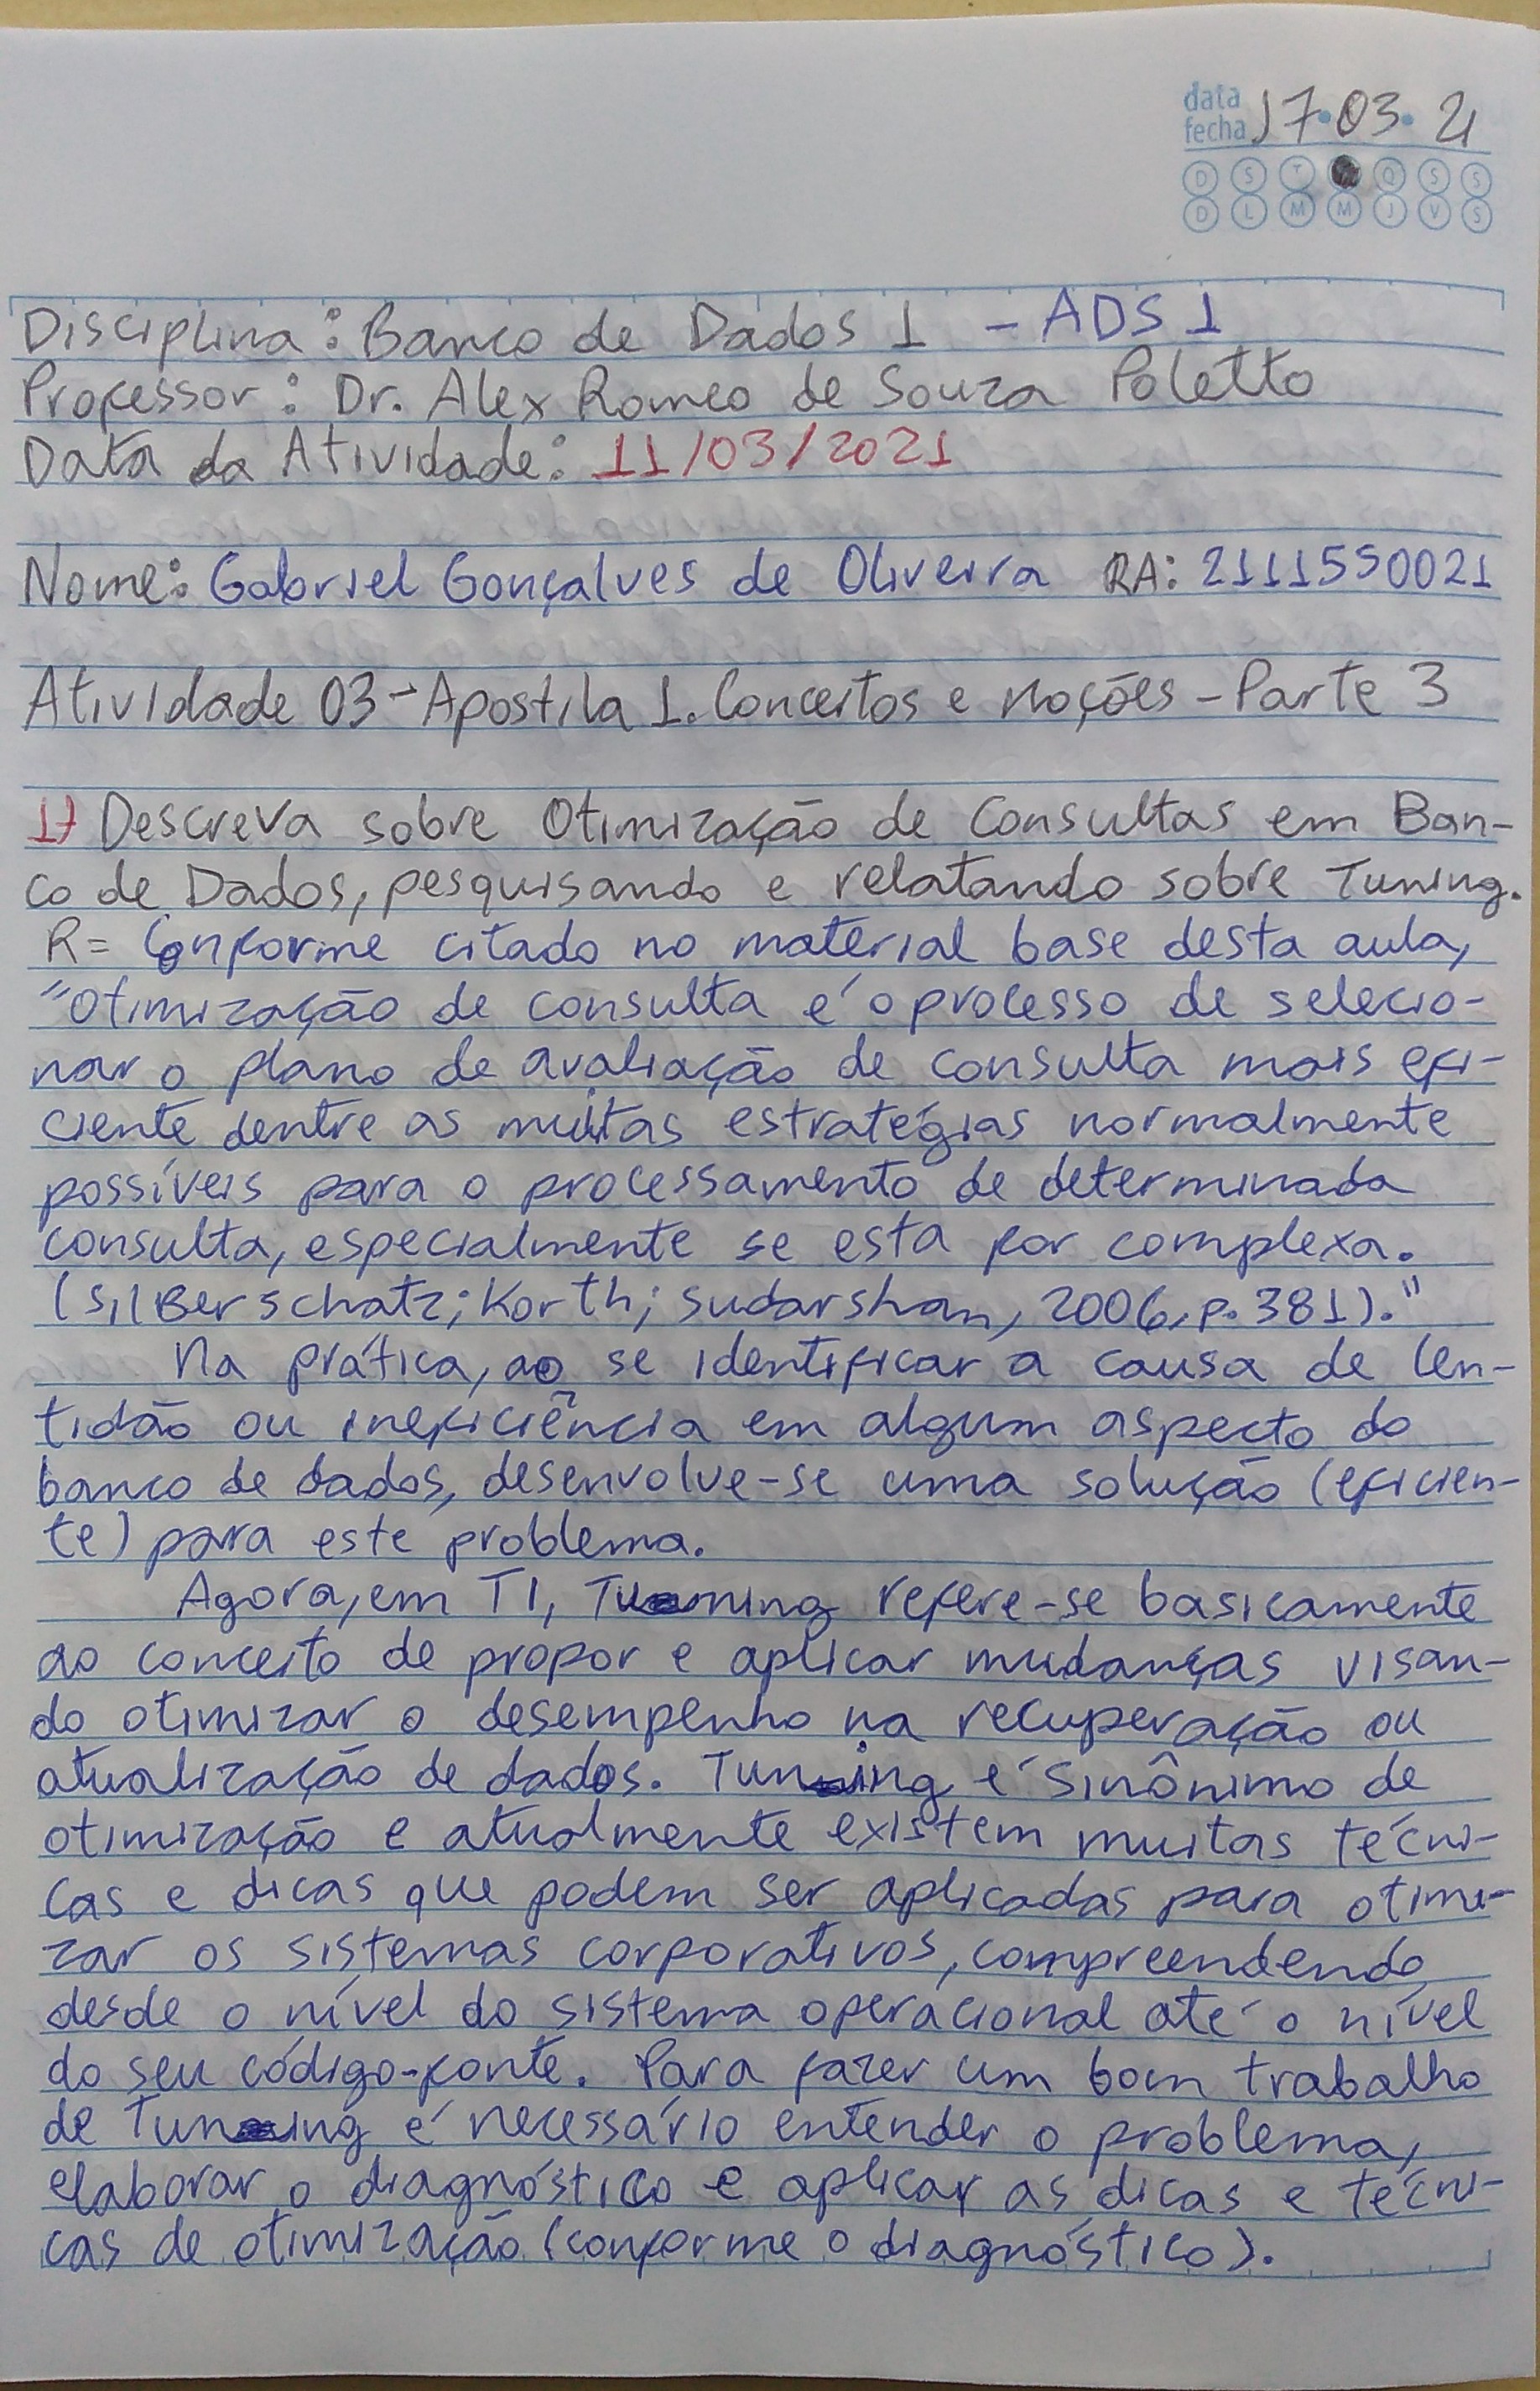 data
fecha 17.03.21
D S T Q S S
D L M M J V S
Disciplina: Banco de Dados 1 - ADS 1
Professor: Dr. Alex Romeo de Souza Poletto
Data da Atividade: 11/03/2021
Nome: Gabriel Gonçalves de Oliveira RA: 2111550021
Atividade 03 - Apostila 1. Conceitos e Noções - Parte 3
1) Descreva sobre Otimização de Consultas em Ban-
co de Dados, pesquisando e relatando sobre Tuning.
R= Conforme citado no material base desta aula,
"Otimização de consulta é o processo de selecio-
nar o plano de avaliação de consulta mais efi-
ciente dentre as muitas estratégias normalmente
possíveis para o processamento de determinada
consulta, especialmente se esta for complexa.
(SilBerschatz; Korth; Sudarshan, 2006, p. 381)."
Na prática, ao se identificar a causa de len-
tidão ou ineficiência em algum aspecto do
banco de dados, desenvolve-se uma solução (eficien-
te) para este problema.
Agora, em TI, Tuning refere-se basicamente
ao conceito de propor e aplicar mudanças visan-
do otimizar o desempenho na recuperação ou
atualização de dados. Tuning é sinônimo de
otimização e atualmente existem muitas técni-
cas e dicas que podem ser aplicadas para otimi-
zar os sistemas corporativos, compreendendo
desde o nível do sistema operacional até o nível
do seu código-fonte. Para fazer um bom trabalho
de Tuning é necessário entender o problema,
elaborar o diagnóstico e aplicar as dicas e técni-
cas de otimização (conforme o diagnóstico).